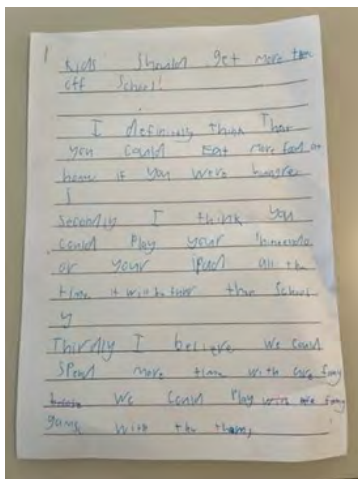 Kids Should get more time
off School!
I definitly think That
you could Eat more food at
home if you were
Secondly I think you
could Play your
or your iPad all the
time it will be than School
y
Thirdly I believe we could
Spend more time with
we could Play with
game with the them,